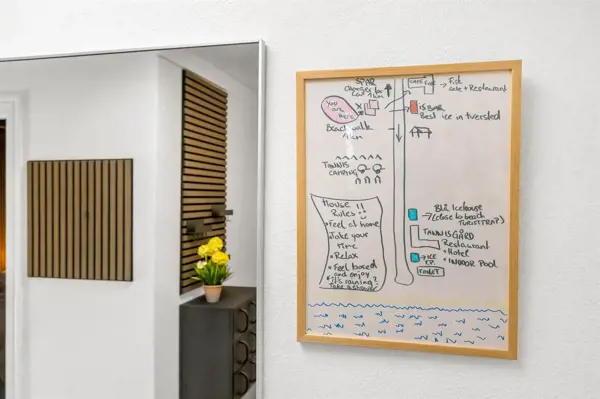 SPAR
You are Here
X
Beachwalk
1 km
→ Fisk
cafe + Restaurant
ISBAR
Best ice in tversted
TANNIS
CAMPING
House
Rules !!
• Feel at home
• Take your
time
• Relax
• Feel based
and enjoy
• it's raining?
Take a shower
Blå Icehouse
→ (close to beach
TURISTTRAP)
TANNISGÅRD
Restaurant
• Hotel
• INDOOR Pool
→ ICE
TOILET